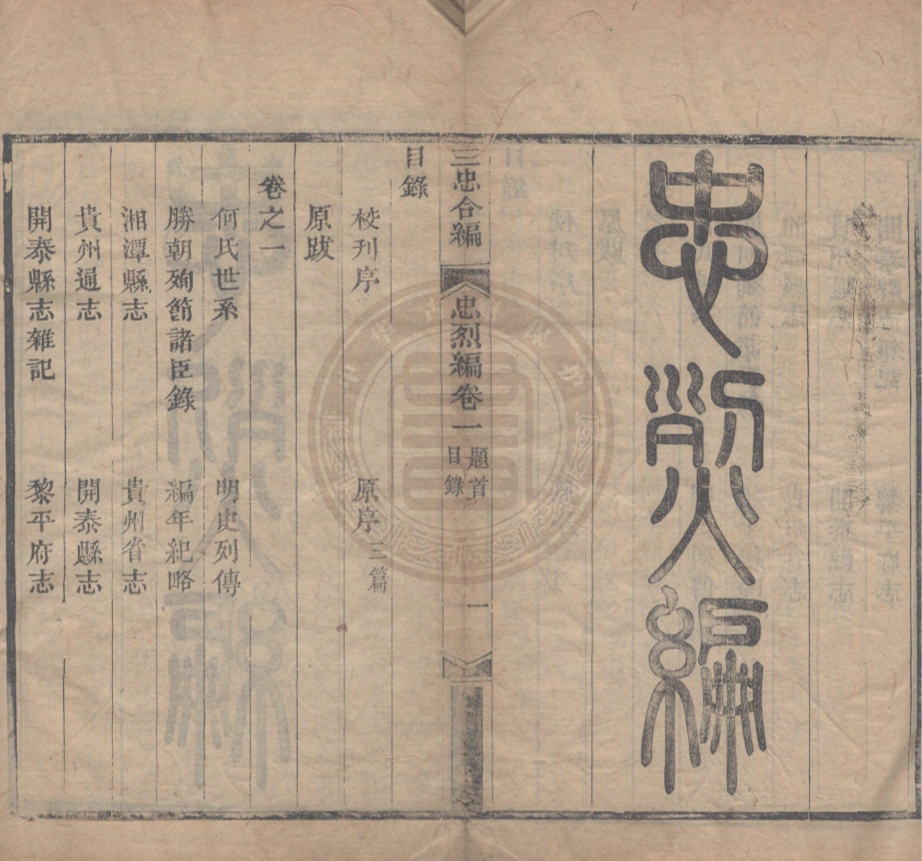 忠烈編
三忠合編 忠烈編卷一 題首 目錄 一
目錄
校刊序 原序三篇
原跋
卷之一
何氏世系 明史列傳
勝朝殉節諸臣錄 編年紀略
湘潭縣志 貴州省志
貴州通志 開泰縣志
開泰縣志雜記 黎平府志